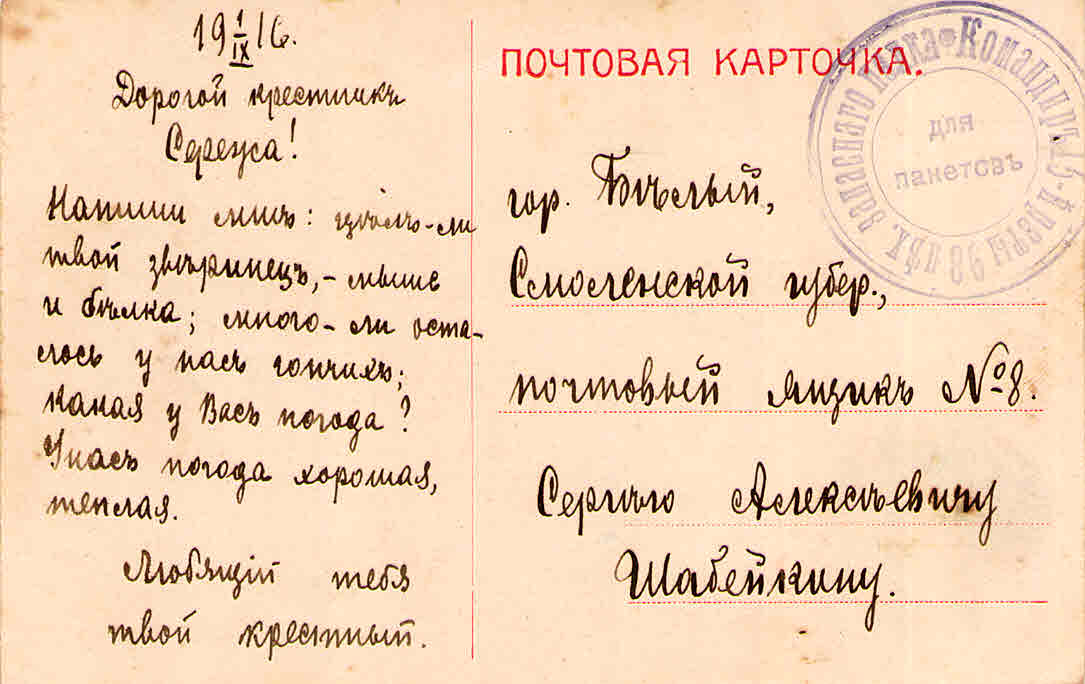 19 1/IX 16.
Дорогой крестникъ
Сережа!
Напиши мнѣ: цѣлъ-ли
твой звѣринецъ, - мыши
и бѣлка; много-ли оста-
лось у насъ гончихъ;
какая у Васъ погода?
У насъ погода хорошая,
теплая.
Любящій тебя
твой крестный.
ПОЧТОВАЯ КАРТОЧКА.
Командиръ 5-й роты 98 пѣх. запаснаго полка
для
пакетовъ
гор. Бѣлый,
Смоленской губер.,
почтовый ящикъ №8.
Сергѣю Алексѣевичу
Шабейкину.